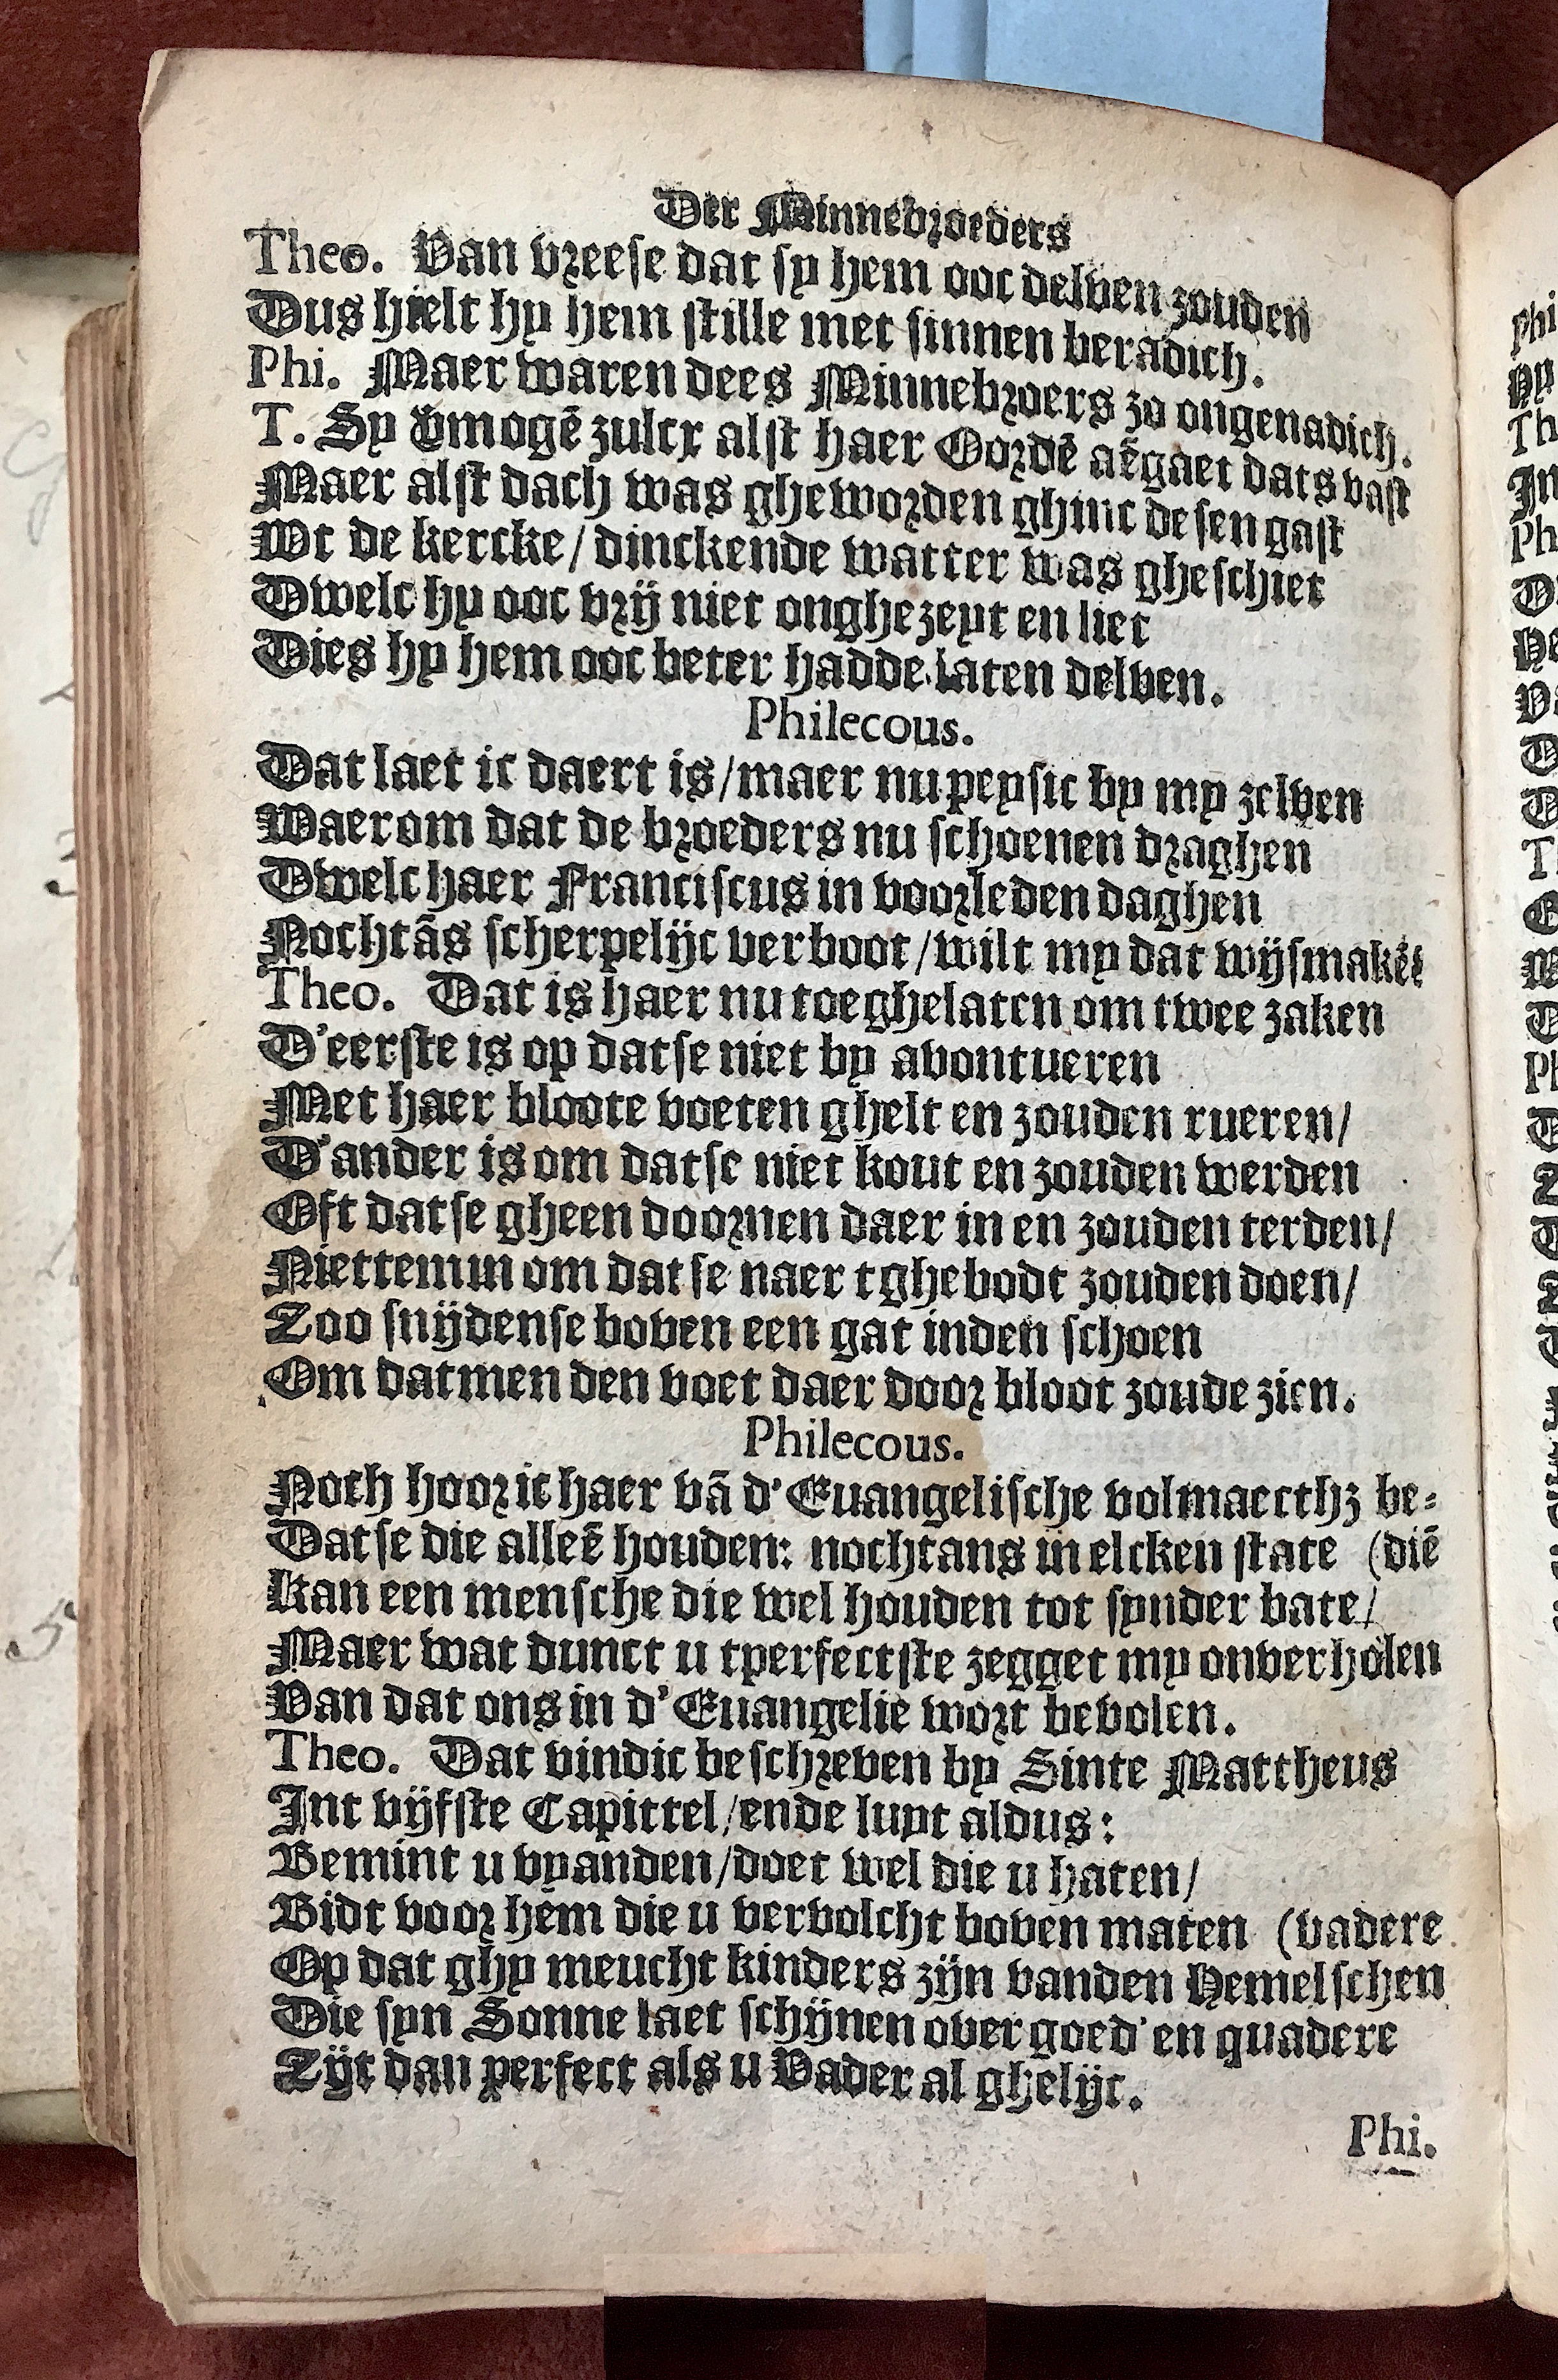 Der Minnebroeders
Theo. Van vreese dat sy hem ooc delven zouden
Dus hielt hy hem stille met sinnen beradich.
Phi. Maer waren dees Minnebroers zo ongenadich.
T. Sy v̄mogē zulcx alst haer Oordē aēgaet dats vast
Maer alst dach was gheworden ghinc desen gast
Wt de kercke/ dinckende watter was gheschiet
Dwelc hy ooc vrij niet onghezeyt en liet
Dies hy hem ooc beter hadde laten delven.
Philecous.
Dat laet ic daert is/maer nu peysic by my zelven
Waerom dat de broeders nu schoenen draghen
Dwelc haer Franciscus in voorleden daghen
Nochtās scherpelijc verboot/wilt my dat wijsmakē
Theo. Dat is haer nu toeghelaten om twee zaken
D'eerste is op datse niet by avontueren
Met haer bloote voeten ghelt en zouden rueren/
D'ander is om datse niet kout en zouden werden
Oft datse gheen doornen daer in en zouden terden/
Niettemin om datse naer tghebodt zouden doen/
Zoo snijdense boven een gat inden schoen
Om datmen den voet daer door bloot zoude zien.
Philecous.
Noch hooric haer vā d'Euangelische volmaecthz be-
Datse die alleē houden: nochtans in elcken state (diē
Kan een mensche die wel houden tot synder bate/
Maer wat dunct u tperfectste zegget my onverholen
Van dat ons in d'Euangelie wort bevolen.
Theo. Dat vindic beschreven by Sinte Mattheus
Int vijfste Capittel/ende luyt aldus:
Bemint u vyanden/doet wel die u haten/
Bidt voor hem die u vervolcht boven maten (vadere
Op dat ghy meucht kinders zijn vanden Hemelschen
Die syn Sonne laet schijnen over goed' en quadere
Zijt dan perfect als u Vader al ghelijc.
Phi.